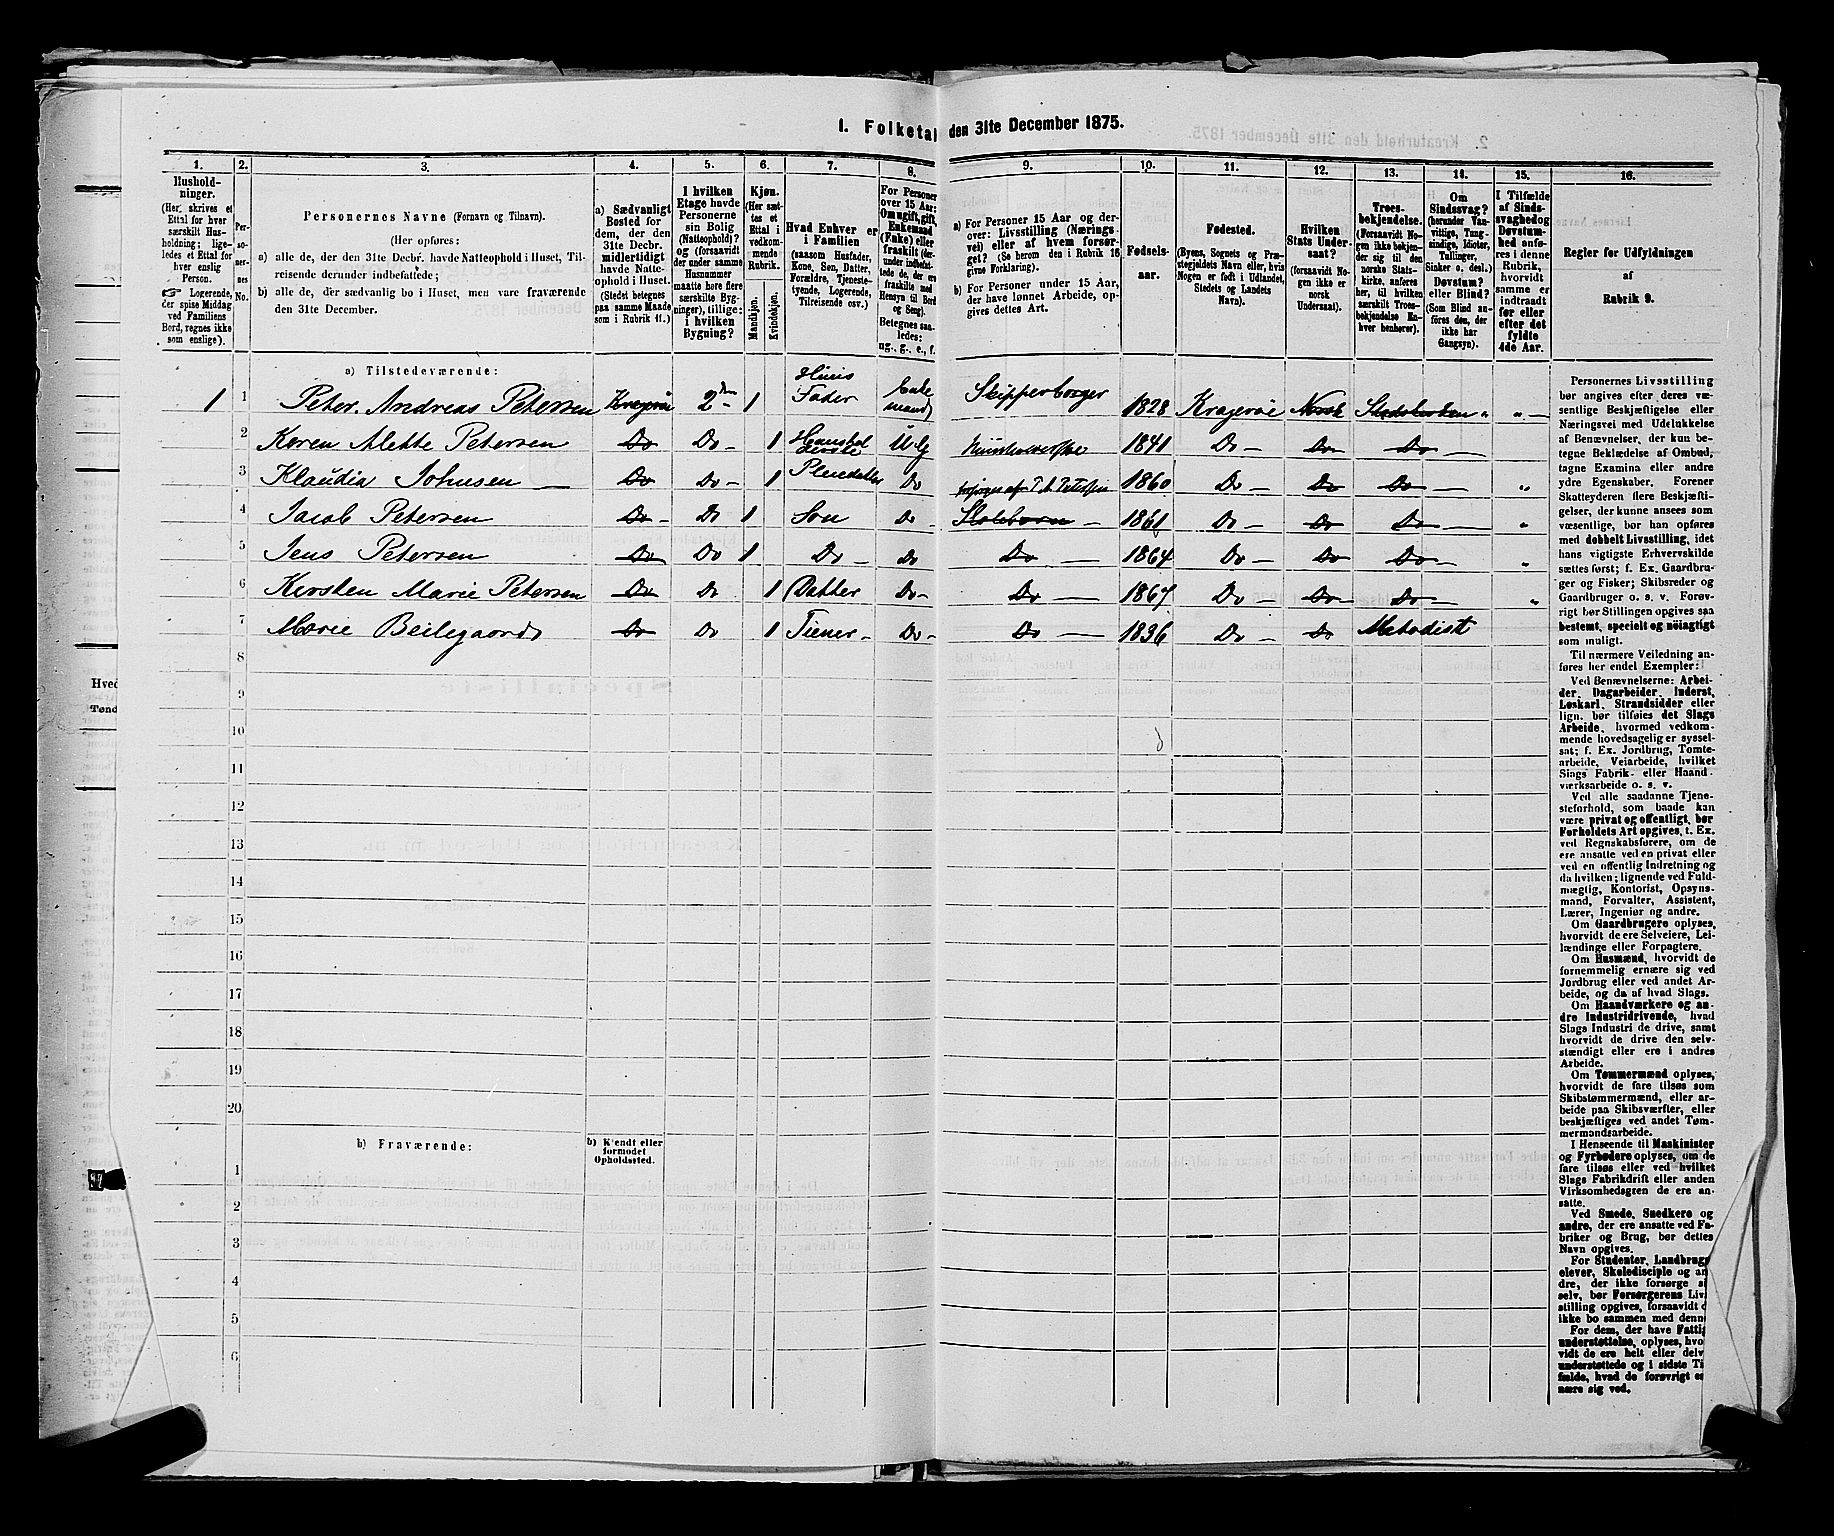 1. Folketal den 31te December 1875.
1.
2.
3.
4.
5.
6.
7.
8.
9.
10.
11.
12.
13.
14.
15.
16.
Hushold-
ninger.
(Her skrives et
Ettal for hver
særskilt Hus-
holdning; lige-
ledes et Ettal for
hver enslig
Person.
☞ Logerende,
der spise Middag
ved Familiens
Bord, regnes ikke
som enslige).
Per-
so-
ner-
nes
No.
Personernes Navne (Fornavn og Tilnavn).
(Her opføres:
a) alle de, der den 31te Decbr. havde Natteophold i Huset, Til-
reisende derunder indbefattede;
b) alle de, der sædvanlig bo i Huset, men vare fraværende
den 31te December.
a) Sædvanligt
Bosted for
dem, der den
31te Decbr.
midlertidigt
havde Natte-
ophold i Huset.
(Stedet betegnes
paa samme Maade
som i Rubrik 11.)
I hvilken
Etage havde
Personerne
sin Bolig
(Natteophold)?
og (forsaavidt
der under samme
Husnummer
maatte høre flere
særskilte Byg-
ninger), tillige:
i hvilken
Bygning?
Kjøn.
(Her sæt-
tes et
Ettal i
vedkom-
mende
Rubrik.
Mandkjøn.
Kvindekjøn.
Hvad Enhver er
i Familien
(saasom Husfader,
Kone, Søn, Datter,
Forældre, Tjeneste-
tyende, Logerende,
Tilreisende osv.)
For Personer
over 15 Aar:
Om ugift, gift,
Enkemand
(Enke) eller
fraskilt (der-
under indbefat-
tede de, der ere
fraskilte med
Hensyn til Bord
og Seng).
Betegnes saa-
ledes:
ug., g., e., f.
a) For Personer 15 Aar og der-
over: Livsstilling (Nærings-
vei) eller af hvem forsør-
get? (Se herom den i Rubrik 16
givne Forklaring).
b) For Personer under 15 Aar,
der have lønnet Arbeide, op-
gives dettes Art.
Fødsels-
aar.
Fødested.
(Byens, Sognets og Præ-
stegjeldets Navn eller, hvis
Nogen er født i Udlandet,
Stedets og Landets
Navn).
Hvilken
Stats Under-
saat?
(forsaavidt No-
gen ikke er
norsk
Undersaat).
Troes-
bekjendelse.
(Forsaavidt No-
gen ikke bekjen-
der sig til den
norske Stats-
kirke, anføres
her, til hvilken
særskilt Troes-
bekjendelse En-
hver henhører).
Om
Sindssvag?
(herunder Van-
vittige, Tung-
sindige, Idioter,
Tullinger,
Sinker o. desl.)
Døvstum?
eller Blind?
(Som Blind an-
føres den, der
ikke har
Gangsyn).
I Tilfælde
af Sinds-
svaghed og
Døvstum-
hed anfø-
res i denne
Rubrik,
hvorvidt
samme er
indtraadt
før eller
efter det
fyldte
4de Aar.
Regler for Udfyldningen
af
Rubrik 9.
a) Tilstedeværende:
1 1 Peter Andreas Petersen Kragerøe 2den 1 Huus Fader Enke mand Skipperborger 1828 Kragerøe Norsk Statskirken " "
2 Karen Alette Petersen Do Do - 1 Ug 1841 Do - Do Do
3 Klaudia Johnsen Do Do - 1 Pleiedatter Do 1860 Do - Do Do "
4 Jacob Petersen Do - Do 1 Søn Do - Skolebarn - 1861 Do - Do Do "
5 Jens Petersen Do Do 1 Do - Do Do 1864 Do - Do Do "
6 Kirsten Marie Petersen Do Do 1 Datter Do - Do 1867 Do - Do Do "
7 Marie Beilegaard Do Do 1 Tiener - Do - Do 1836 Do - Do Metodist
8
9
10
11
12
13
14
15
16
17
18
19
20
b) Fraværende:
b) Kjendt eller
formodet
Opholdssted.
1
2
3
4
5
6
Personernes Livsstilling
bør angives efter deres væ-
sentlige Beskjæftigelse eller
Næringsvei med Udelukkelse
af Benævnelser, der kun be-
tegne Beklædelse af Ombud,
tagne Examina eller andre
ydre Egenskaber. Forener
Skatteyderen flere Beskjæfti-
gelser, der kunne ansees som
væsentlige, bør han opføres
med dobbelt Livsstilling, idet
hans vigtigste Erhvervskilde
sættes først; f. Ex. Gaardbru-
ger og Fisker; Skibsreder og
Gaardbruger o. s. v. Forøv-
rigt bør Stillingen opgives saa
bestemt, specielt og nøiagtigt
som muligt.
Til nærmere Veiledning an-
føres her endel Exempler:
Ved Benævnelserne: Arbei-
der, Dagarbeider, Inderst,
Løskarl, Strandsidder eller
lign. bør tilføies det Slags
Arbeide, hvormed vedkom-
mende hovedsagelig er syssel-
sat; f. Ex. Jordbrug, Tomte-
arbeide, Veiarbeide, hvilket
Slags Fabrik- eller Haand-
værksarbeide o. s. v.
Ved alle saadanne Tjene-
steforhold, som baade kan
være privat og offentligt, bør
Forholdets Art opgives, t. Ex.
ved Regnskabsførere, om de
ere ansatte ved en privat eller
ved en offentlig Indretning og
da hvilken; lignende ved Fuld-
mægtig, Kontorist, Opsyns-
mand, Forvalter, Assistent,
Lærer, Ingeniør og andre.
Om Gaardbrugere oplyses,
hvorvidt de ere Selveiere, Lei-
lændinge eller Forpagtere.
Om Husmænd, hvorvidt de
fornemmelig ernære sig ved
Jordbrug eller ved andet Ar-
beide, og da af hvad Slags.
Om Haandværkere og an-
dre Industridrivende, hvad
Slags Industri de drive, samt
hvorvidt de drive den selv-
stændigt eller ere i andres
Arbeide.
Om Tømmermænd oplyses,
hvorvidt de fare tilsøs som
Skibstømmermænd, eller ar-
beide paa Skibsværfter, eller
beskjæftiges ved andet Tøm-
mermandsarbeide.
I Henseende til Maskinister
og Fyrbødere oplyses, om de
fare tilsøs eller ved hvilket
Slags Fabrikdrift eller anden
Virksomhedsgren de ere an-
satte.
Ved Smede, Snedkere og
andre, der ere ansatte ved Fa-
briker og Brug, bør dettes
Navn opgives.
For Studenter, Landbrugs
elever, Skoledisciple og an
dre, der ikke forsørge si
selv, bør Forsørgerens Liv
stilling opgives, forsaavidt d
ikke bo sammen med denne
For dem, der have Fattig
understøttelse, oplyses, hvo
vidt de ere helt eller delv
understøttede og i sidste Ti
fælde, hvad de forøvrigt e
nære sig ved.
Hved
Tønd